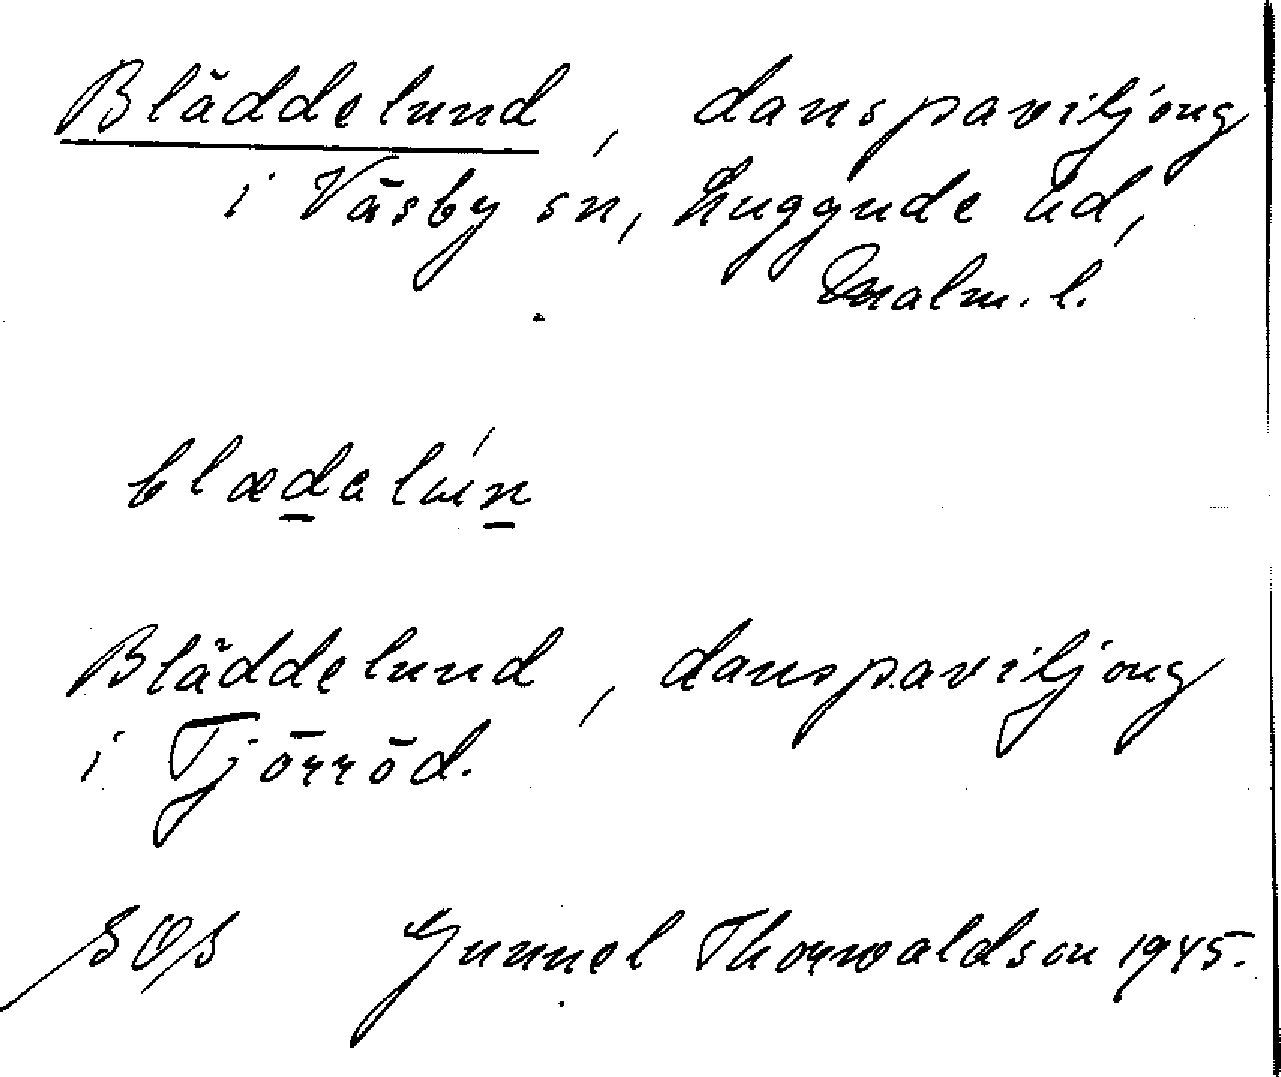 Bläddelund, danspaviljong
i Väsby sn, Luggude hd,
Malm. l.
Bläddelund, danspaviljong
i Tjörröd.
Gunnel Thorwaldson 1945.